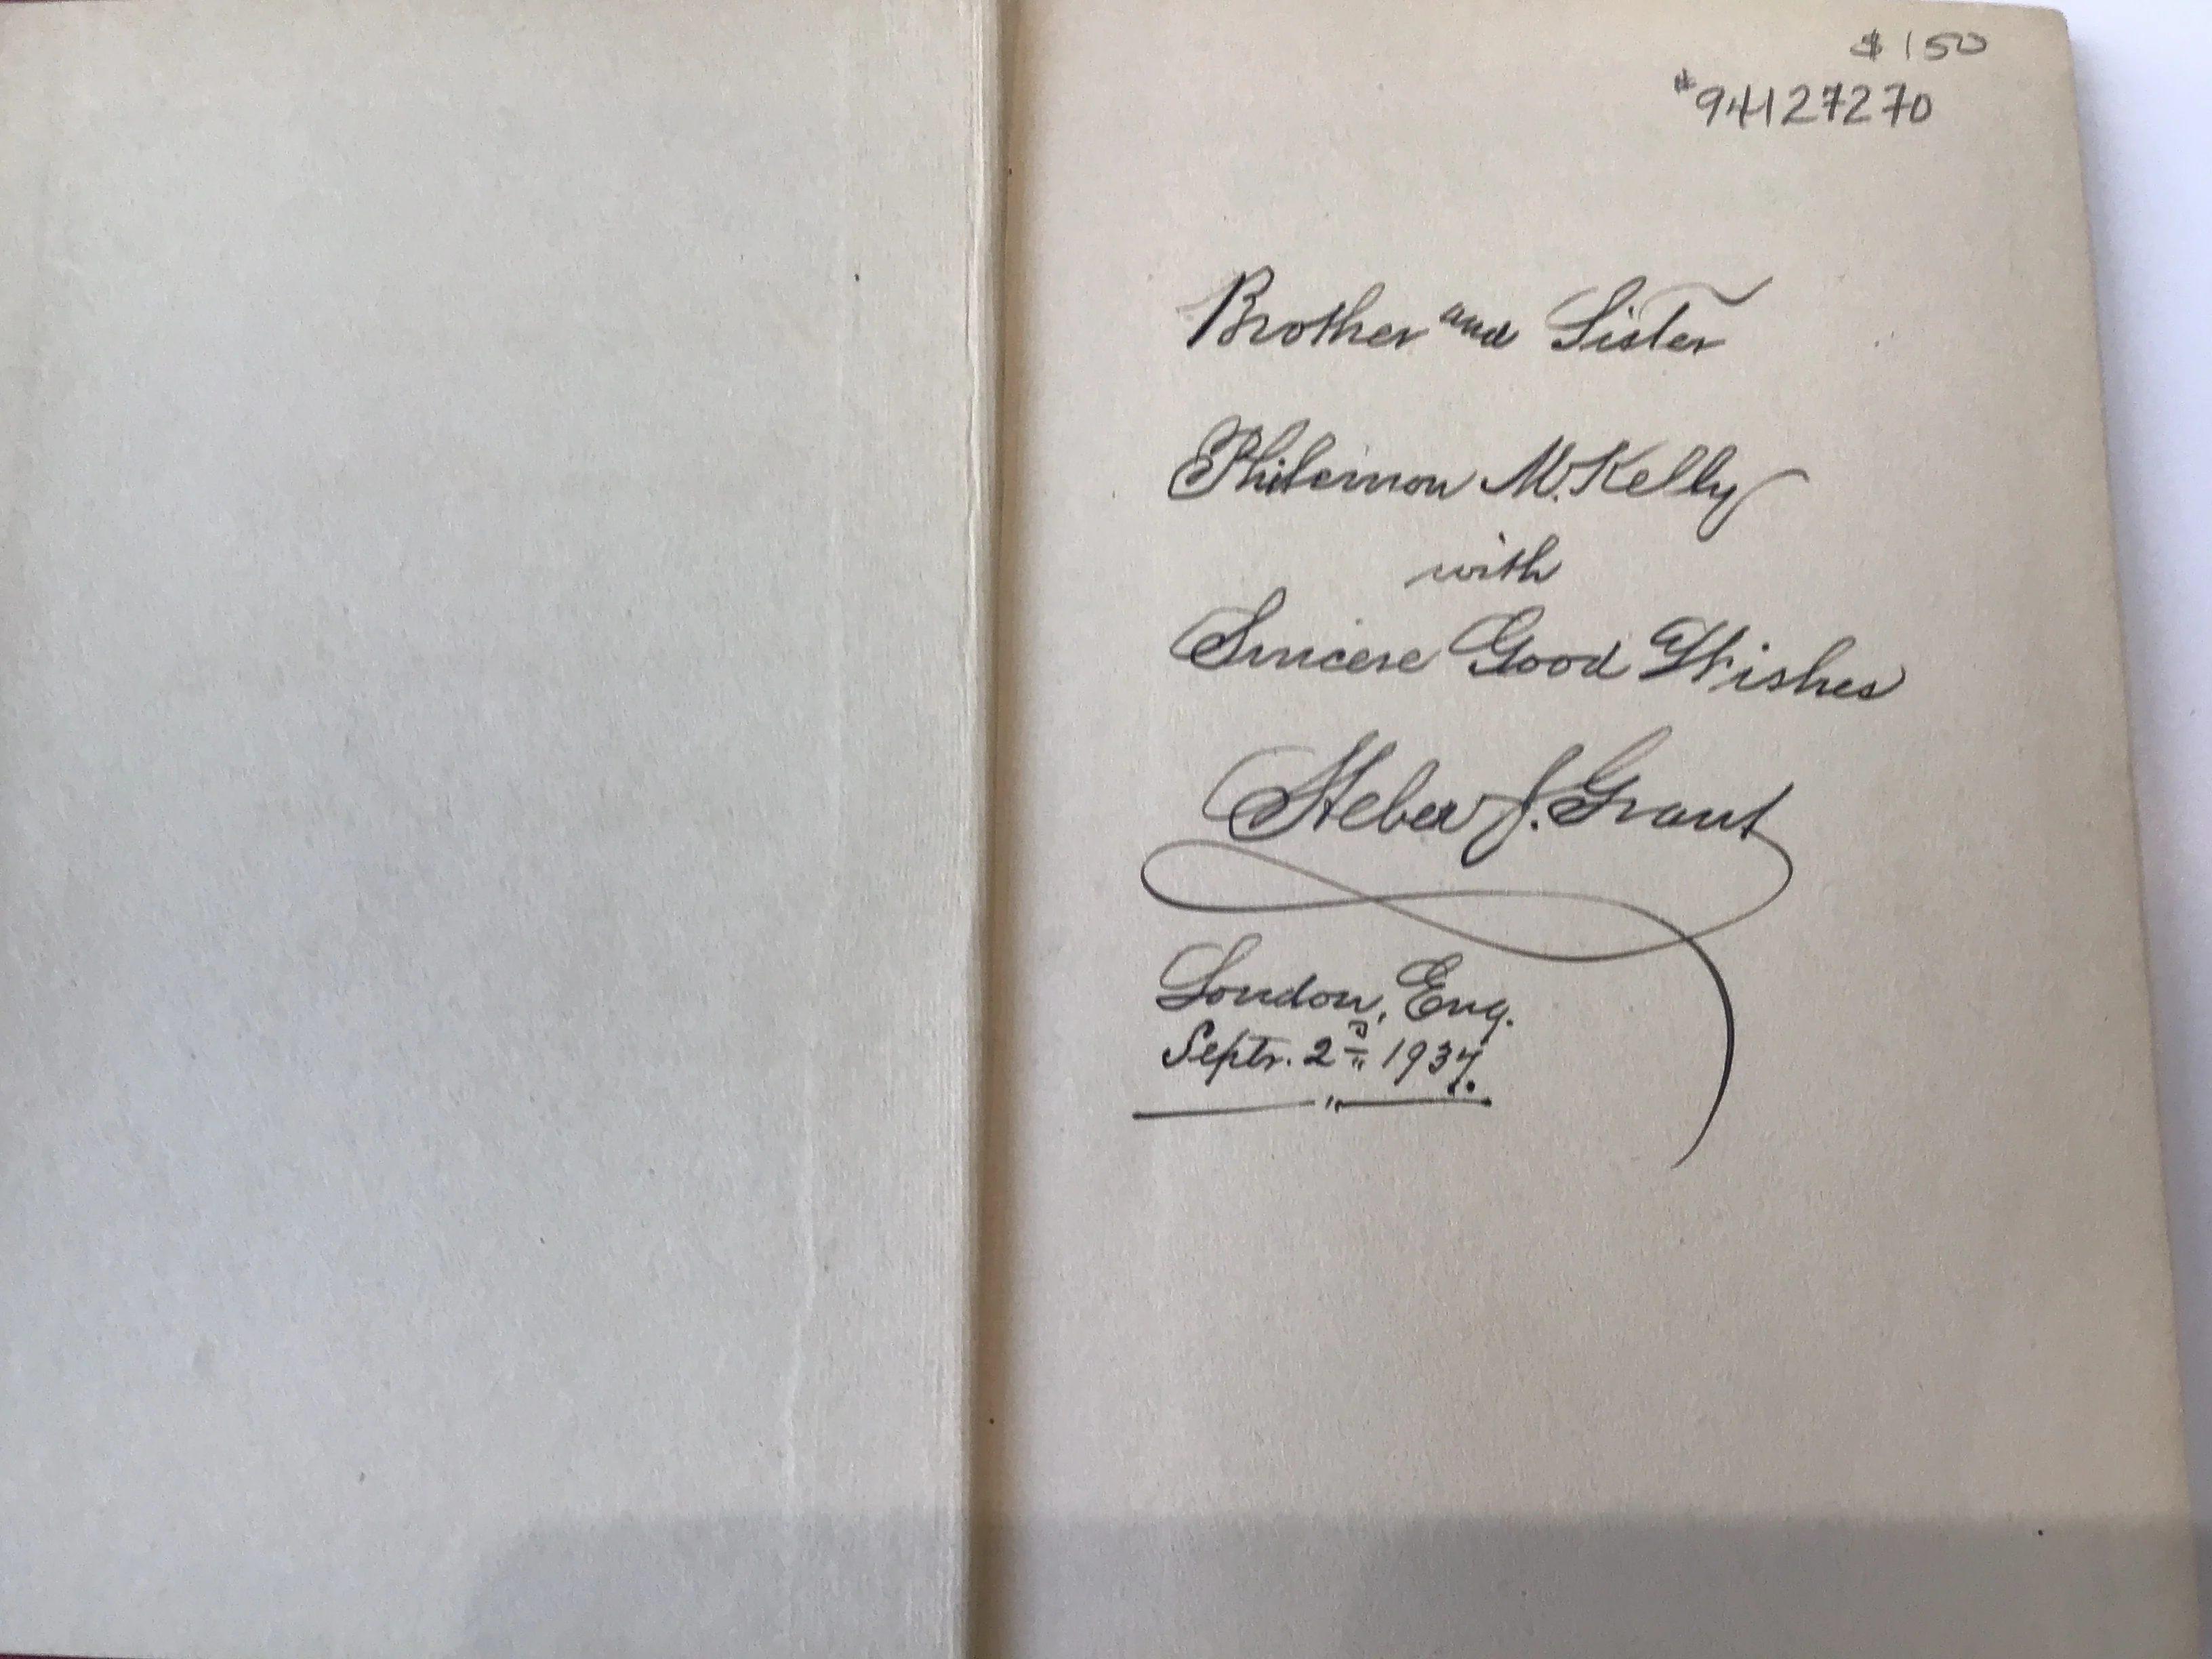 $150
#94127270
Brother and Sister
Philemon M. Kelly
with
Sincere Good Wishes
Heber J. Grant
London, Eng.
Septr. 2nd 1937.